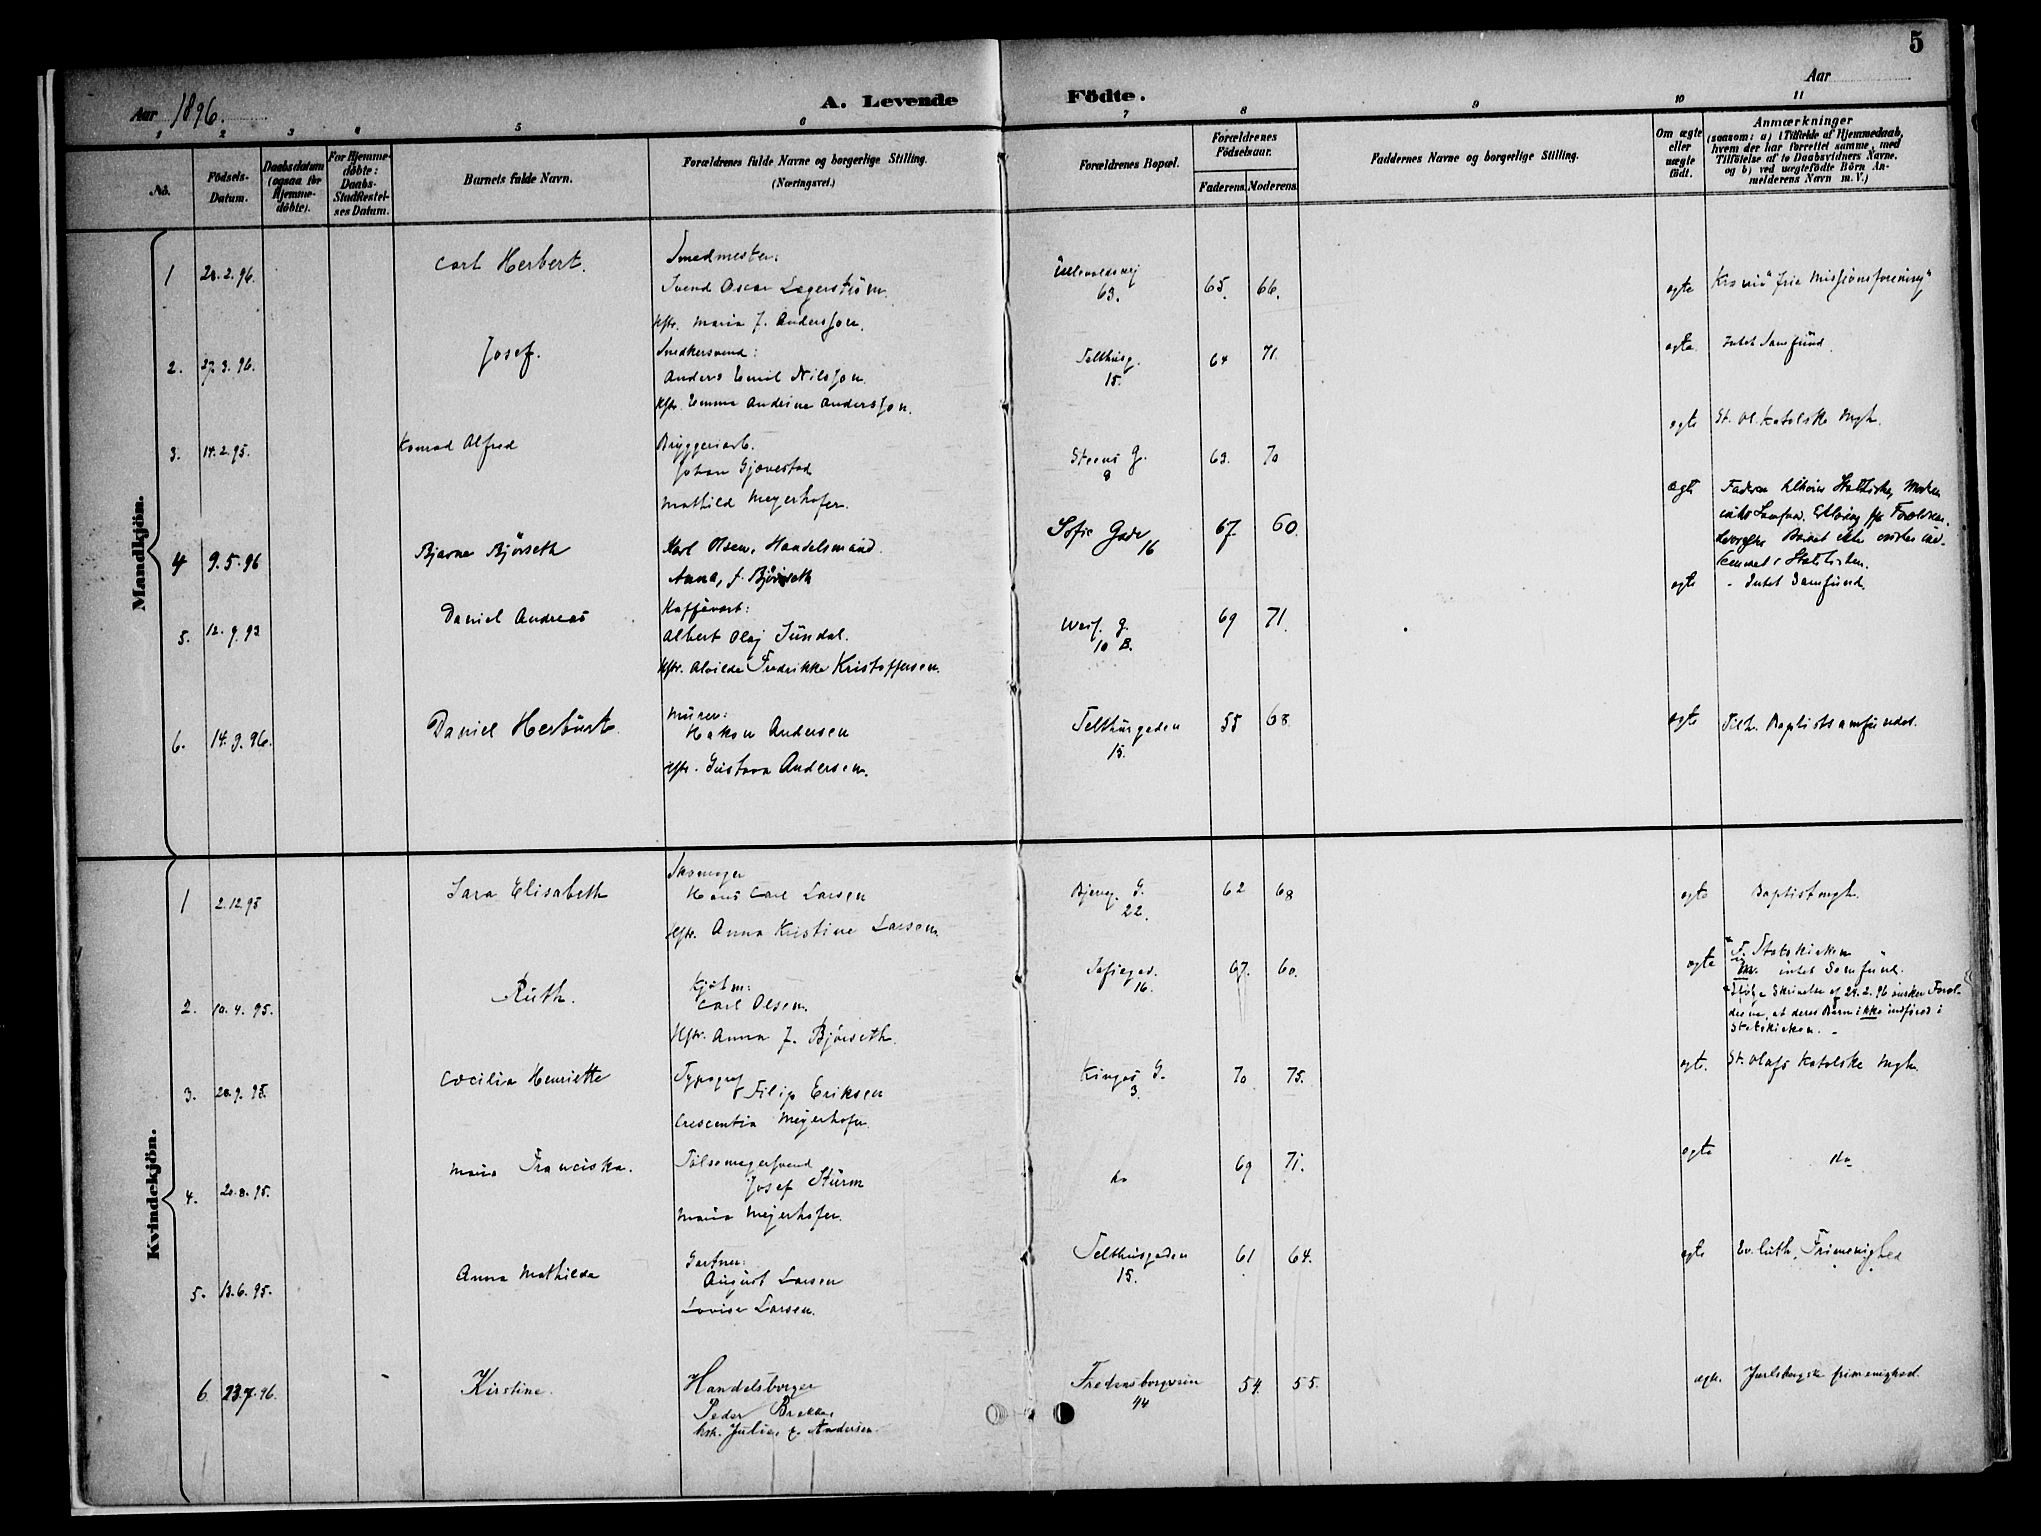 5
Aar 1896.
A. Levende Födte.
Aar
1 2 3 4 5 6 7 8 9 10 11
No.
Födsels-Datum.
Daabsdatum (ogsaa for Hjemme-döbte).
For Hjemme-döbte: Daabs-Stadfæstel-ses Datum.
Barnets fulde Navn.
Forældrenes fulde Navne og borgerlige Stilling. (Næringsvei.)
Forældrenes Bopæl.
Forældrenes Födselsaar.
Faderens. Moderens.
Faddernes Navne og borgerlige Stilling.
Om ægte eller uægte födt.
Anmærkninger
(saasom: a) i Tilfælde af Hjemmedaab, hvem der har forrettet samme, med Tilföielse af to Daabsvidners Navne. og b) ved uægtefödte Börn An-melderens Navn m. V.)
Mandkjön.
1 20.2.96. Carl Herbert.
Smedmester:
Svend Oscar Lagerström.
Hstr. Maria f. Andersson.
Ullevoldsvej 63. 65. 66. ægte fria Missionsforening"
2. 27.3.96. Josef.
Snedkersvend:
Anders Emil Nilsson.
Hstr. Emma Andrine Andersson.
Telthusg. 15. 64 71. ægte. Intet Samfund.
3. 14.2.95. Konrad Alfred
Bryggeriarb.
Johan Gjævestad
Mathild Meyerhofer.
Steens G. 8 63. 70 ægte St. Ol. Katolske Mgh.
4 9.5.96 Bjarne Björseth
Karl Olsen, Handelsmand.
Anna, f. Björseth
Sofie Gade 16 67. 60. ægte
5. 12.9.93 Daniel Andreas
Kaffevært:
Albert Olaj Sundal.
Hstr. Alvilde Fredrikke Kristoffersen.
10 B. 69 71. ægte - Intet Samfund.
6. 14.3.96. Daniel
Murer:
Hakon Andersen
Hstr. Gustava Andersen.
Telthusgaden 15. 55 68. ægte Baptistsamfundet.
Kvindekjön.
1 2.12.95 Sara Elisabeth
Skomager
Hans Carl Larsen
Hstr. Anna Kristine Larsen.
G. 22. 62 68 ægte Baptistmgh.
2. 10.4.95. Ruth.
Kjøbm:
Carl Olsen.
Hstr. Anna f. Björseth.
Sofiegad. 16. 67. 60. ægte
F. Statskirken
M. intet Samfund.
Ifølge Skrivelse af 24.2.96 ønsker Foræl-
drene, at deres Barn ikke indføres i
Statskirken. -
3. 20.9.95. Cæcilia Henriette
Typograf
Filip Eriksen
Crescentia Meyerhofer.
Kingos G. 3. 70 75. ægt. St. Olafs Katolske Mgh.
4. 20.8.95. Maria Franciska.
Josef Sturm
Maria Meyerhofer.
do 69 71. ægte do
5. 13.6.95. Anna Mathilda
Gartner:
August Larsen
Lovise Larsen.
Telthusgaden 15. 61 64. ægte Ev. luth. Frimenighed
6 23.7.96. Kirstine.
Handelsborger
Peder Brekke
hstr. Julie, f. Andersen.
Fredensborgveien 44 54. 55. ægte. Jarlsbergske frimenighed.